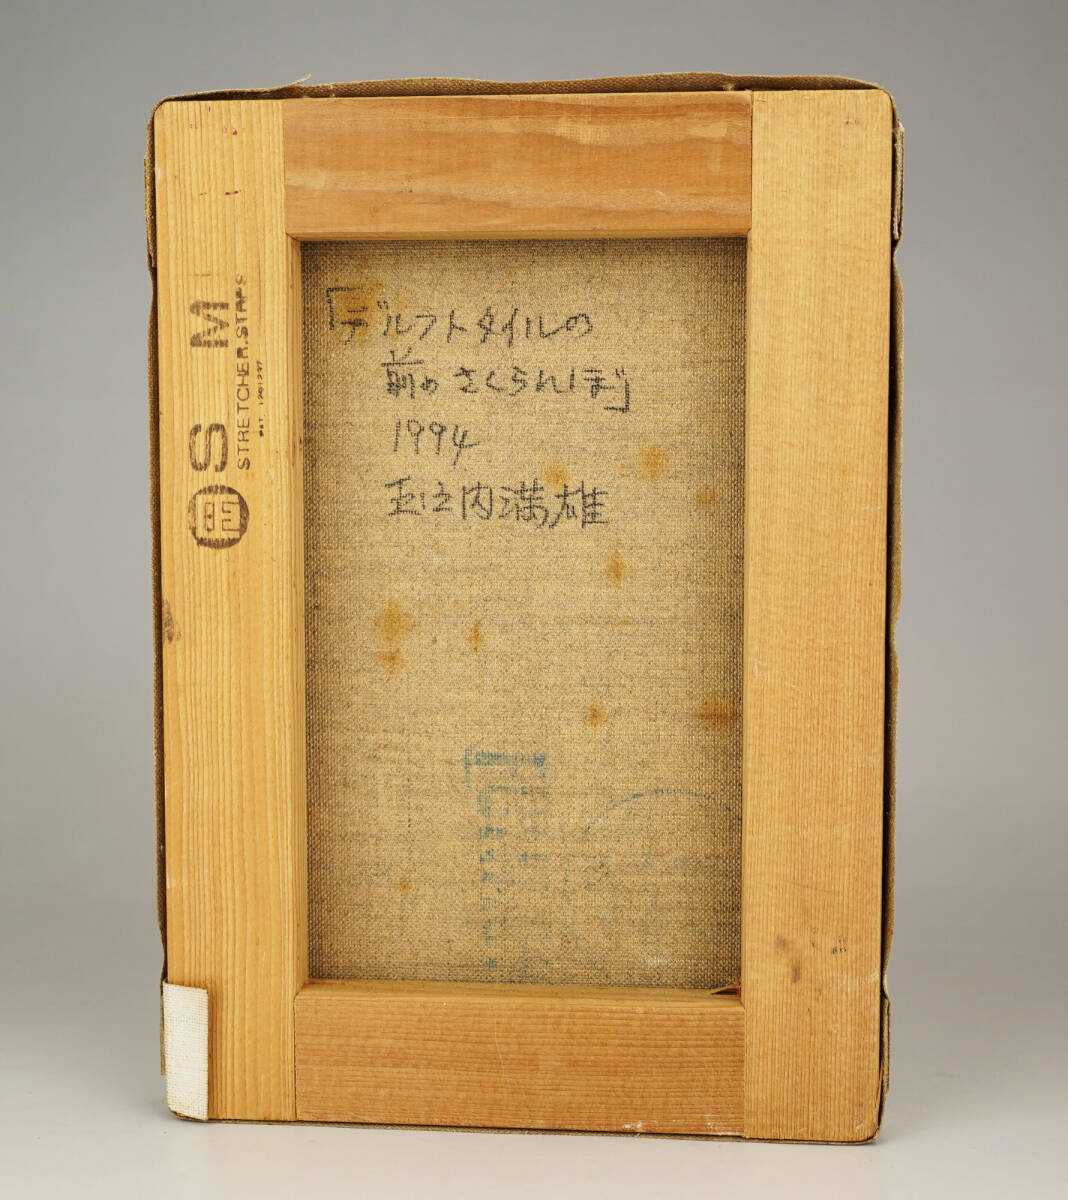 「デルフトタイルの
前のさくらんぼ」
1994
玉之内満雄
SM
STRETCHER.STRPS
PAT. 1261297